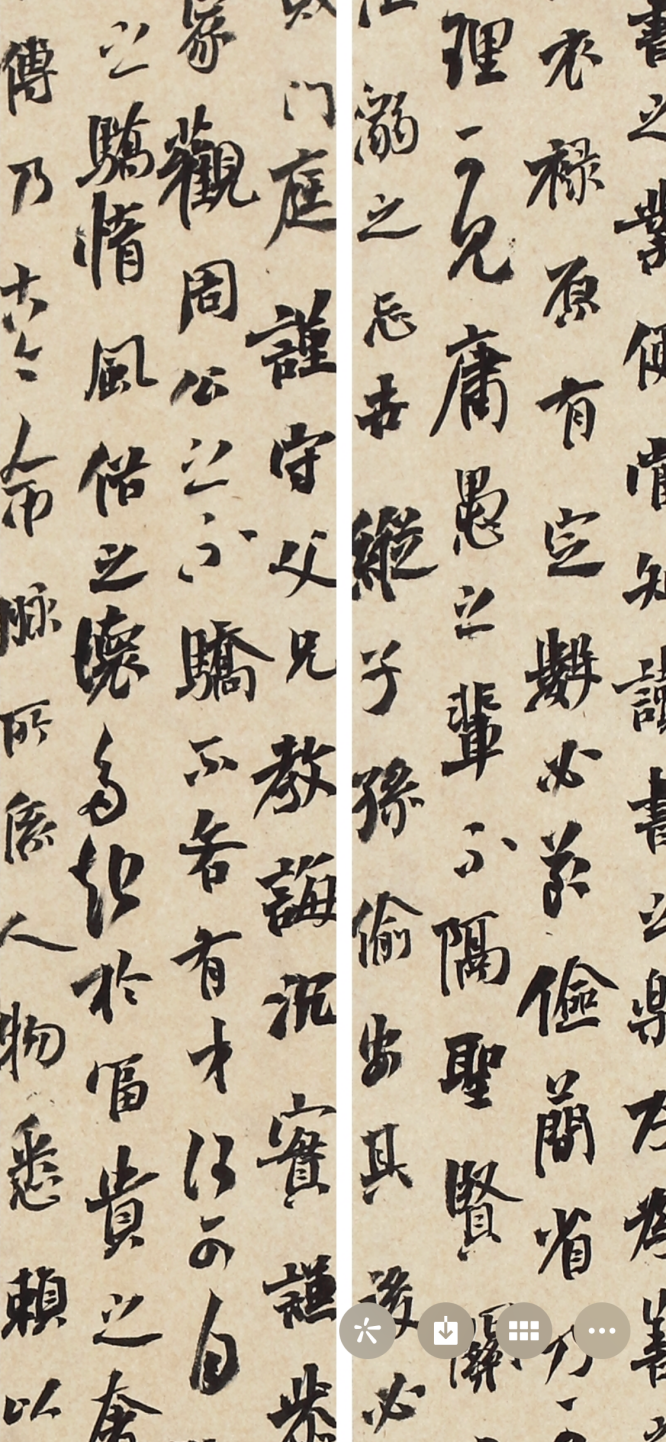 書之業便當知讀書之樂存為善
衣祿原有定數必節儉簡省乃可
理一可見庸愚之輩不隔聖賢關
溺之忘世縱子孫偷安其後必
敗門庭謹守父兄教誨沉實謙恭
家觀周公之不驕不吝有才何可自
之驕惰風俗之壞多起於富貴之奢
傳乃古今命脈所係人物悉賴以